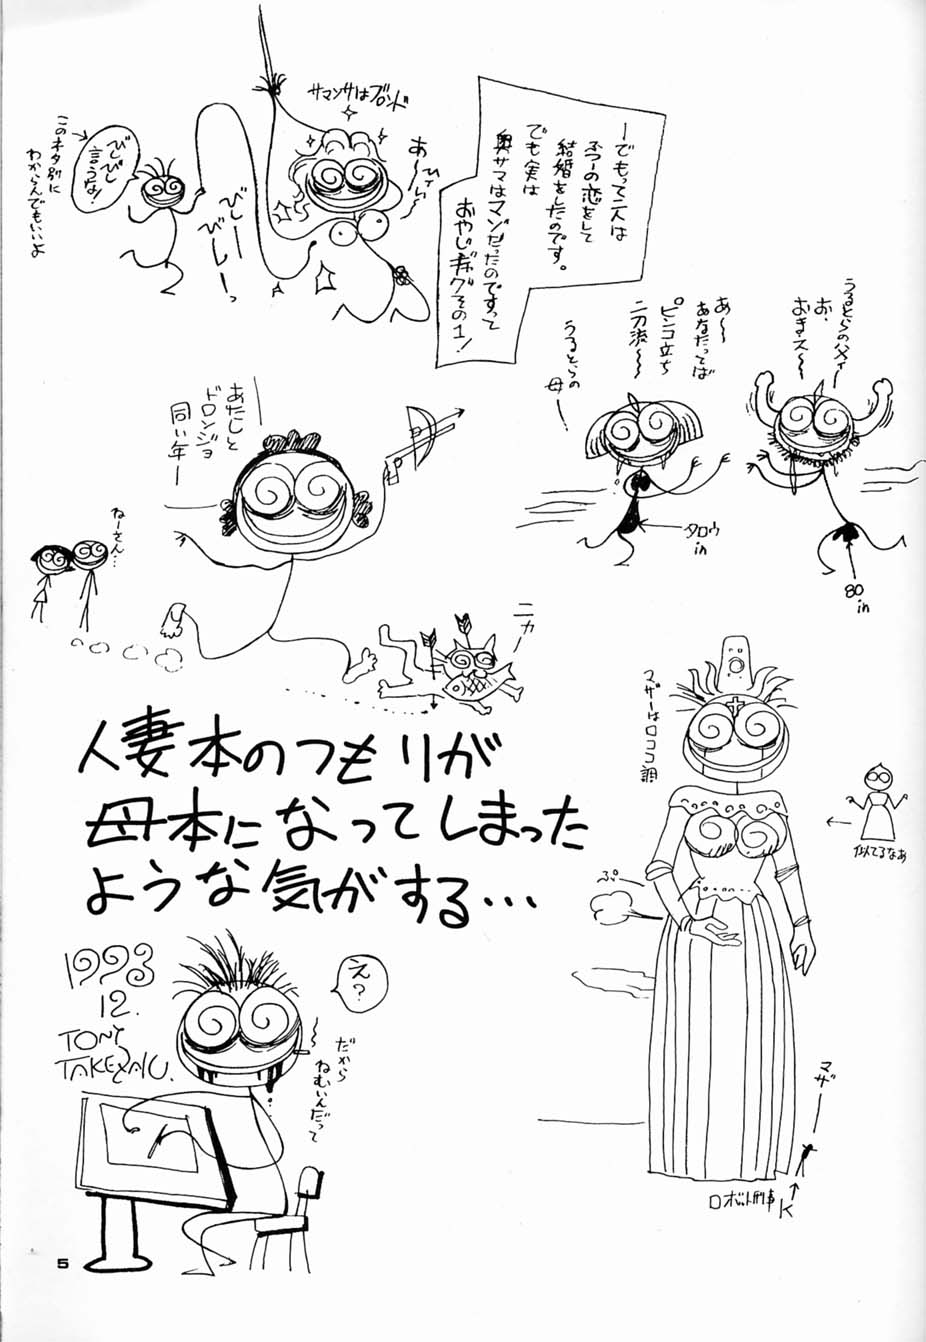 ーでもって二人は
ふつーの恋をして
結婚をしたのです。
でも実は
奥サマはマゾだったのですって
おやじギャグその1!
サマンサはブロンド
あ〜
びしー
びしーっ
びしびし
言うな!
このネタ別に
わからんでもいいよ
うるとらの父ィ
お、
おきス〜
あ〜
あなたってば
ピンコ立ち
二刀流〜
うるとらの
母ー
タロウ
in
80
in
あたしと
ドロンジョ
同い年ー
ねーさん…
ニカー
人妻本のつもりが
母本になってしまった
ような気がする…
マザーはロココ調
似てるなあ
ぷー
マザー
ロボット刑事K
1993
12.
TONY
TAKEZAKI.
え?
だから
ねむいんだって
5